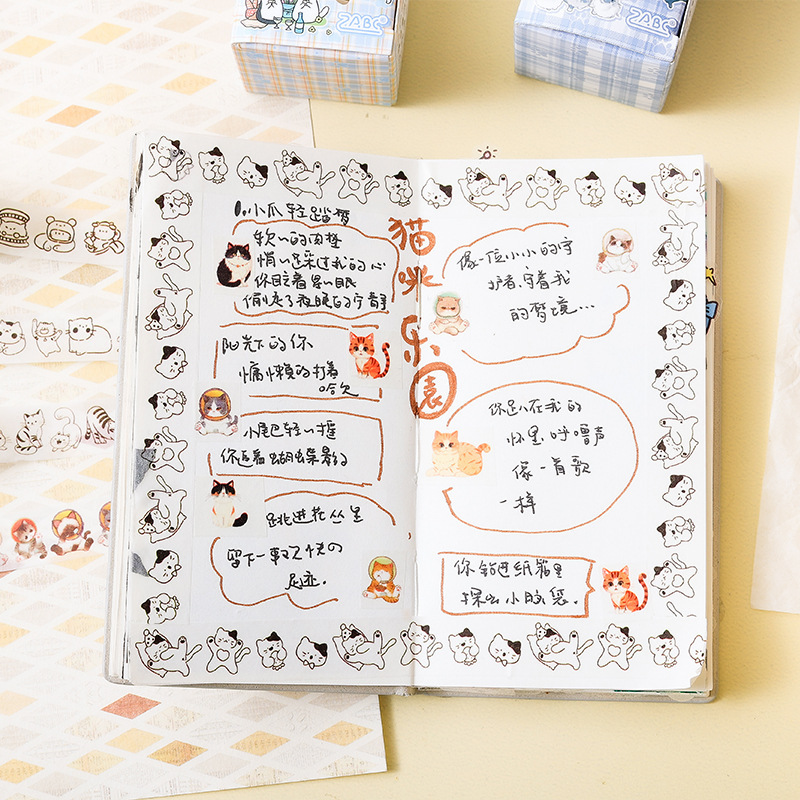 ZABC
ZABC
小爪轻踏梦
软〃的肉垫
悄〃踩过我的心
你眨着黑〃眼
偷走了夜晚的宁静
阳光下的你
慵懒的打着
哈欠
小尾巴轻〃摇
你追着蝴蝶影
跳进花丛里
留下一串欢快の
足迹.
猫
咪
乐
园
像一位小小的守
护者.守着我
的梦境...
你趴在我的
怀里.呼噜声
像一首歌
一样
你钻进纸箱里
探出小脑袋.